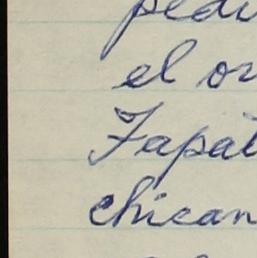 pedi
el or
Zapat
chican